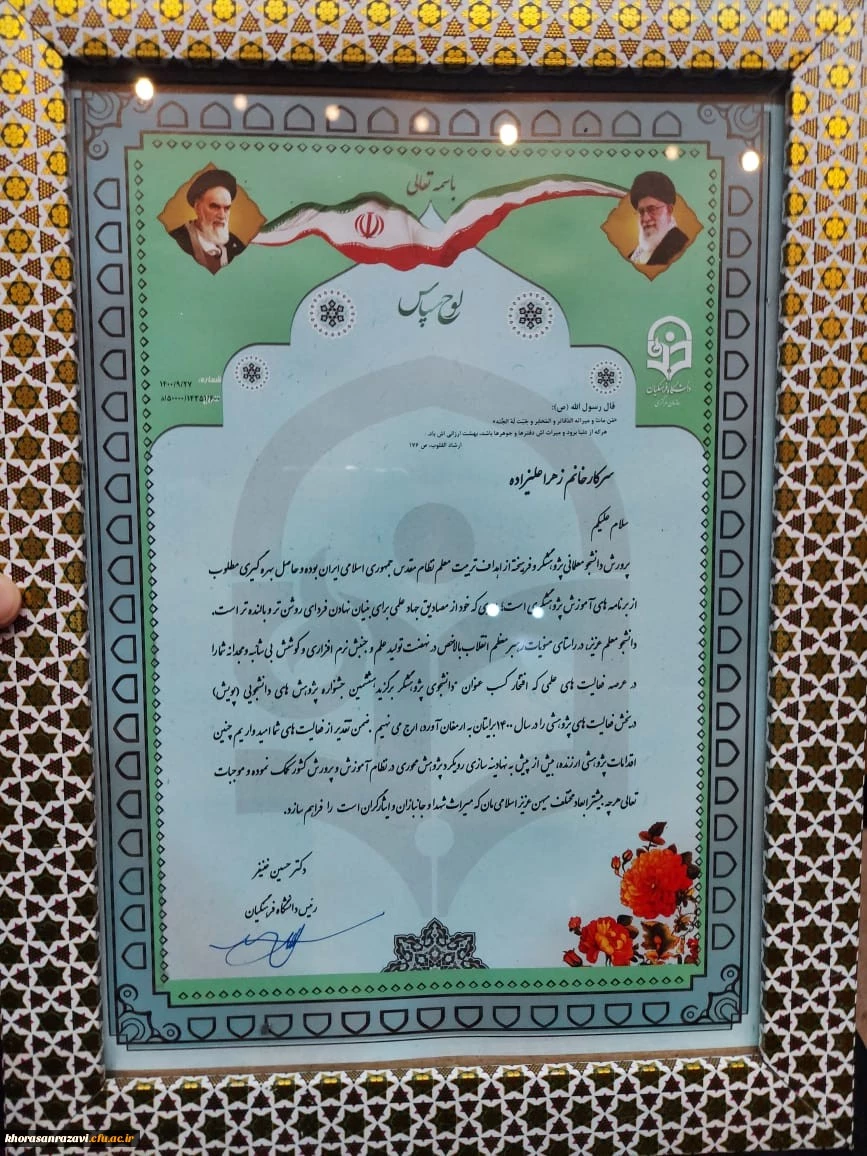 باسمه تعالی
لوح سپاس
شماره:
۱۴۰۰/۹/۲۷
دانشگاه فرهنگیان
سازمان مرکزی
قال رسول الله (ص):
«مَن ماتَ و میراثه الدَّفاتر و المَحابِر و جَبَت لَهُ الجَنَّه»
هرکه از دنیا برود و میراث اش دفترها و جوهرها باشد، بهشت ارزانی اش باد.
ارشاد القلوب، ص ۱۷۶
سرکار خانم زهرا علیزاده
سلام علیکم
پرورش دانشجو معلمانی پژوهشگر و فرهیخته از اهداف تربیت معلم نظام مقدس جمهوری اسلامی ایران بوده و حاصل بهره گیری مطلوب
از برنامه های آموزش پژوهشگری است؛ که خود از مصادیق جهاد علمی برای بنیان نهادن فردای روشن تر و بالنده تر است.
دانشجو معلم عزیز، در راستای منویات رهبر معظم انقلاب بالاخص در نهضت تولید علم و جنبش نرم افزاری و کوشش بی شائبه و مجدانه شما را
در عرصه فعالیت های علمی که افتخار کسب عنوان "دانشجوی پژوهشگر برگزیده ششمین جشنواره پژوهش های دانشجویی (پویش)
در بخش فعالیت های پژوهشی را در سال ۱۴۰۰ برایتان به ارمغان آورد، ارج می نهیم. ضمن تقدیر از فعالیت های شما امید واریم چنین
اقدامات پژوهشی ارزنده، بیش از پیش به نهادینه سازی رویکرد پژوهش محوری در نظام آموزش و پرورش کشور کمک نموده و موجبات
تعالی هرچه بیشتر ابعاد مختلف میهن عزیز اسلامی مان که میراث شهدا و جانبازان و ایثارگران است را فراهم سازد.
دکتر حسین خنیفر
رئیس دانشگاه فرهنگیان
khorasanrazavi.cfu.ac.ir